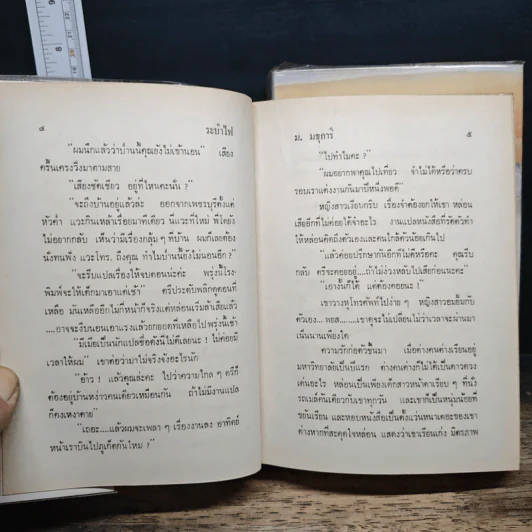 ๔ ระบำไฟ
"ผมนึกแล้วว่าป่านนี้คุณยังไม่เข้านอน" เสียง
ครื้นเครงวิ่งมาตามสาย
"เสียงชัดเชียว อยู่ที่ไหนคะนั่น ?"
"จะถึงบ้านอยู่แล้วล่ะ ออกจากเพชรบุรีตั้งแต่
หัวค่ำ แวะกินเหล้าเรื่อยมาพักเดียว นี่แวะที่ใหม่ พี่โตยัง
ไม่อยากกลับ เห็นว่ามีเรื่องกลุ้ม ๆ ที่บ้าน ผมก็เลยต้อง
นั่งทนฟัง แวะโทร. ถึงคุณ ทำไมป่านนี้ยังไม่นอนอีก ?"
"จะรีบแปลเรื่องให้จบตอนน่ะค่ะ พรุ่งนี้โรง-
พิมพ์จะให้เด็กมาเอาแต่เช้า"
เหลือ มันเหลืออีกไม่กี่หน้าก็จริงแต่หล่อนเริ่มล้าเสียแล้ว
....อาจจะงีบนอนเอาแรงแล้วยกยอดที่เหลือไปพรุ่งนี้เช้า
"มีเมียเป็นนักแปลชื่อดังนี่ไม่ดีเลยนะ ! ไม่ค่อยมี
เวลาให้ผม" เขาต่อว่ามาไม่จริงจังอะไรนัก
"อ้าว ! แล้วคุณล่ะคะ ไปต่างความไกล ๆ ตรีก็
ต้องอยู่บ้านหงาวคนเดียวเหมือนกัน ถ้าไม่มีงานแปล
ก็คงเหงาตาย"
"เถอะ....แล้วผมจะเพลา ๆ เรื่องงานลง อาทิตย์
หน้าเราบินไปภูเก็ตกันไหม ?"
ม. มธุการี ๕
"ไปทำไมคะ ?"
"ผมอยากพาคุณไปเที่ยว จำไม่ได้หรือว่าครบ
รอบเราแต่งงานกันมาปีหนึ่งพอดี"
หญิงสาวเงียบกริบ เรื่องจำต้องยกให้เขา หล่อน
เสียอีกที่ไม่ค่อยได้จำอะไร งานแปลหนังสือที่รัดตัวทำ
ให้หล่อนคิดถึงตัวเองและคนใกล้ตัวน้อยเกินไป
"แล้วค่อยปรึกษากันอีกทีไม่ดีหรือคะ คุณรีบ
กลับ ตรีจะคอยอยู่....ถ้าไม่ง่วงหลับไปเสียก่อนนะคะ"
"เอางั้นก็ได้ แต่ต้องคอยนะ !"
เขาวางหูโทรศัพท์ไปง่าย ๆ หญิงสาวยอมยิ้มกับ
ตัวเอง... พอล......เขาดูจะไม่เปลี่ยนไม่ว่าเวลาจะผ่านมา
เนิ่นนานเพียงใด
ความรักก่อตัวขึ้นมา เมื่อต่างคนต่างเรียนอยู่
มหาวิทยาลัยเป็นปีแรก ต่างคนต่างก็ไม่ได้เป็นดาวดวง
เด่นอะไร หล่อนเป็นเพียงเด็กสาวหน้าตาเรียบ ๆ ที่นั่ง
รถเมล์คันเดียวกับเขาทุกวัน และเขาก็เป็นหนุ่มน้อยที่
ขยันเรียน และหอบหนังสือเป็นตั้งแว่นหนาเตอะของเขา
ต่างหากที่สะดุดใจหล่อน แสดงว่าเขาเรียนเก่ง มิตรภาพ